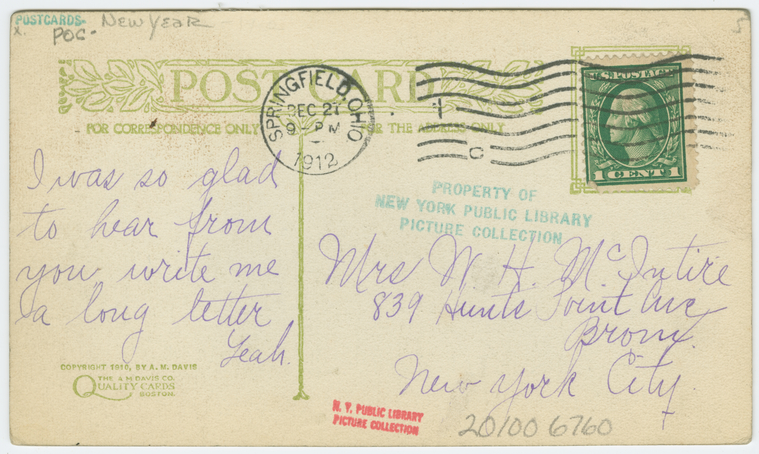 POSTCARDS-
X.
POC-
New Year
5
POST CARD
FOR CORRESPONDENCE ONLY
FOR THE ADDRESS ONLY
SPRINGFIELD, OHIO
DEC 27
9 - PM
1912
1 CENT 1
I was so glad
to hear from
you write me
a long letter
Leah.
PROPERTY OF
NEW YORK PUBLIC LIBRARY
PICTURE COLLECTION
Mrs W. H. McIntire
839 Hunts Point Ave
Bronx.
New York City.
COPYRIGHT 1910, BY A. M. DAVIS
THE A M DAVIS CO.
QUALITY CARDS
BOSTON.
N. Y. PUBLIC LIBRARY
PICTURE COLLECTION
20100 6760